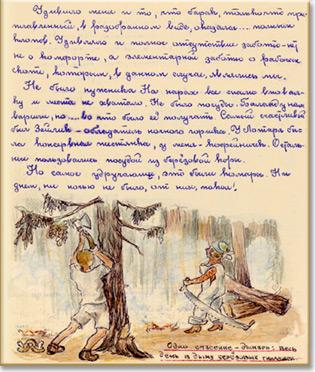 Удивило меня и то, что барак, только что при-
плавленный, в разобранном виде, оказался.... полным
клопов. Удивляло и полное отсутствие заботы - ну
не о комфорте, а элементарной заботы о рабочем
скоте, которым, в данном случае, являлись мы.
Не было нужника. На нарах все спали впова-
лку и места не хватало. Не было посуды. Баланду нам
варили, но.... во что было её получать. Самый счастливый
был Зейлик - обладатель ночного горшка. У Лотаря бы-
ла консервная жестянка, у меня - кофейничек. Осталь-
ные пользовались посудой из берёзовой коры.
Но самое удручающее, это были комары. Ни
днём, ни ночью не было, от них, покоя!
Одно спасение - дымарь: весь
день в дыму